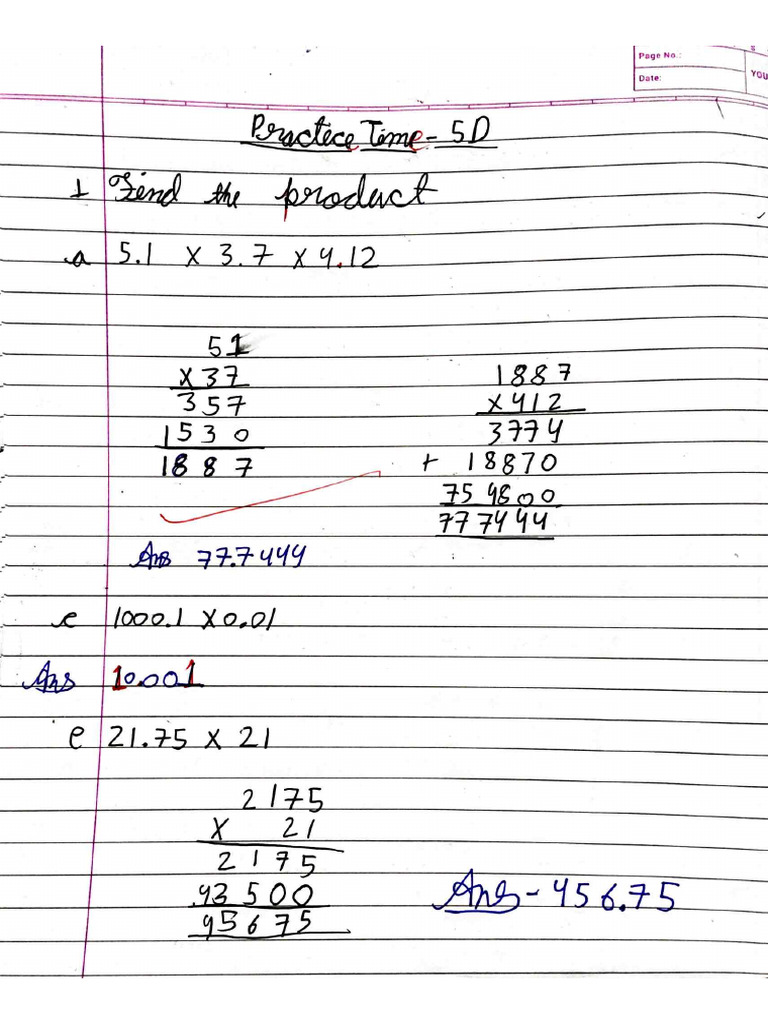 Page No.:
Date:
YOU
Practice Time - 5D
1 Find the product
a 5.1 x 3.7 x 4.12
51
x 37
357
1530
1887
1887
x 412
3774
+ 18870
754800
777444
Ans 77.7444
c 1000.1 x 0.01
Ans 10.001
e 21.75 x 21
2175
x 21
2175
43500
45675
Ans - 456.75